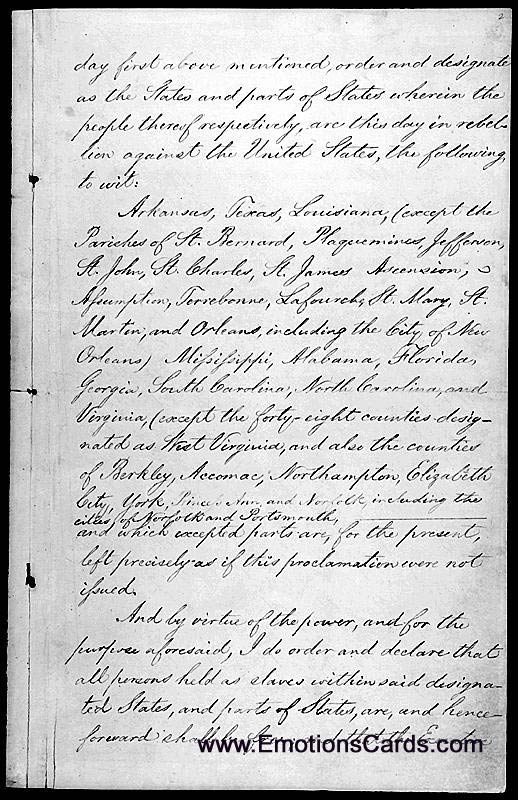 2
day first above mentioned, order and designate
as the States and parts of States wherein the
people thereof respectively, are this day in rebel-
lion against the United States, the following,
to wit:
Arkansas, Texas, Louisiana, (except the
Parishes of St. Bernard, Plaquemines, Jefferson,
St. John, St. Charles, St. James Ascension,
Assumption, Terrebonne, Lafourche, St. Mary, St.
Martin, and Orleans, including the City of New
Orleans) Mississippi, Alabama, Florida,
Georgia, South Carolina, North Carolina, and
Virginia, (except the forty-eight counties desig-
nated as West Virginia, and also the counties
of Berkley, Accomac, Northampton, Elizabeth
City, York, Princess Ann, and Norfolk, including the
cities of Norfolk and Portsmouth,
and which excepted parts are, for the present,
left precisely as if this proclamation were not
issued.
And by virtue of the power, and for the
purpose aforesaid, I do order and declare that
all persons held as slaves within said designa-
ted States, and parts of States, are, and hence-
forward shall be that the
www.EmotionsCards.com